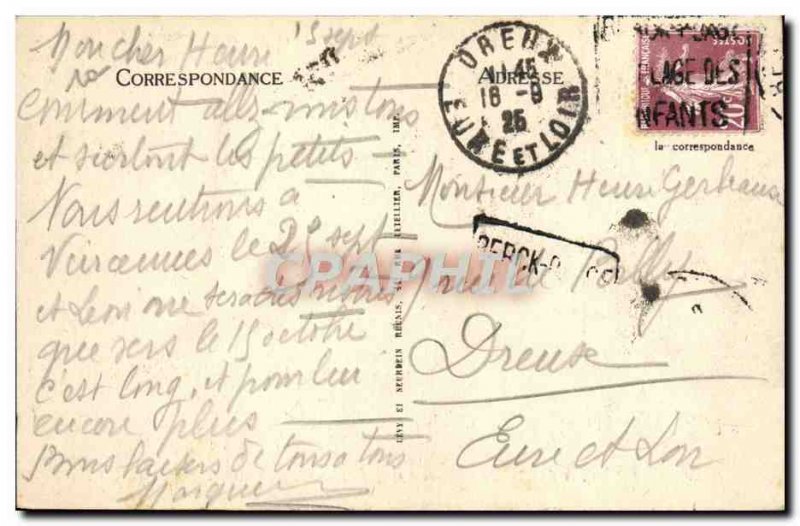 15 sept
Mon cher Henri
CORRESPONDANCE
Comment allez-vous tous
et surtout les petits
Nous rentrons à
Vincennes le 25 sept
et Léon ne sera des nôtres
que vers le 15 octobre
c'est long, et pour lui
encore plus
Bons baisers de tous à tous
LÉVY ET NEURDEIN RÉUNIS, 44, RUE LETELLIER, PARIS, IMP.
ADRESSE
DREUX
EURE ET LOIR
16 -9
25
PLAGE DES
ENFANTS
20c
la correspondance
BERCK-P
Monsieur Henri Gerbeaux
rue
Dreux
Eure et Loir
CPARAPHIL